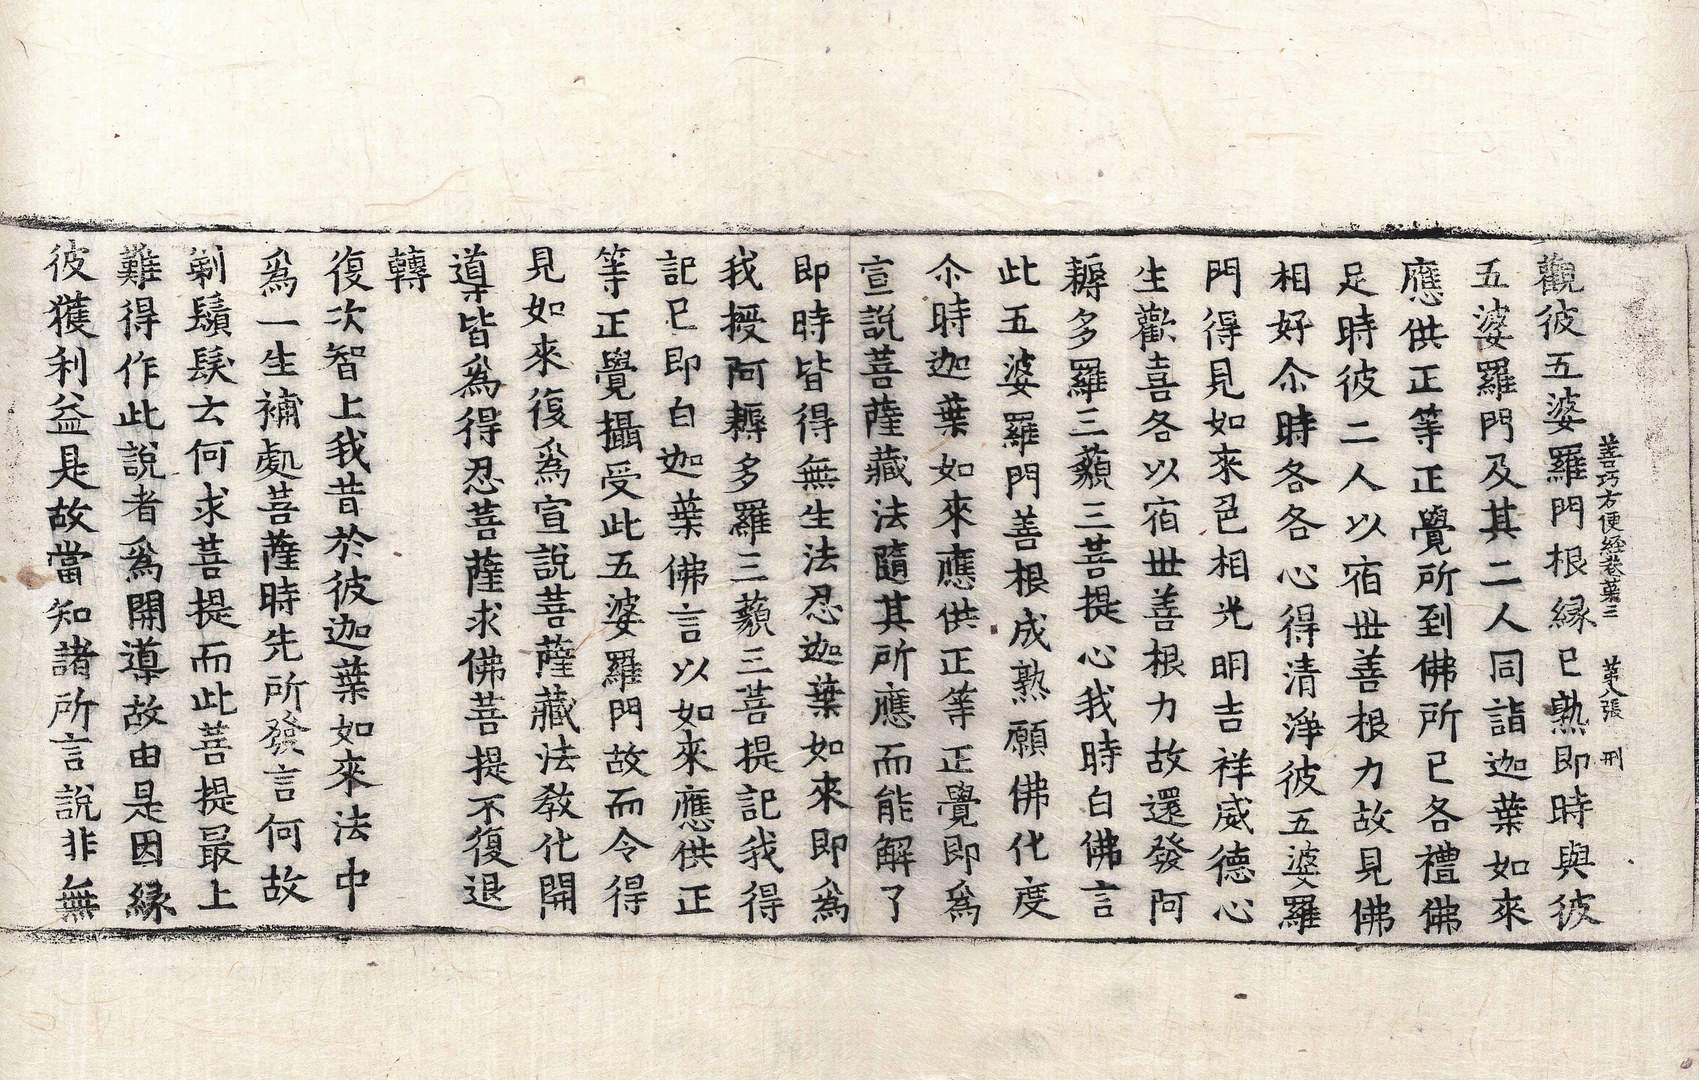 善巧方便経卷第三　第八張　刑
觀彼五婆羅門根縁已熟即時與彼
五婆羅門及其二人同詣迦葉如來
應供正等正覺所到佛所已各禮佛
足時彼二人以宿世善根力故見佛
相好尒時各各心得清淨彼五婆羅
門得見如來色相光明吉祥威德心
生歡喜各以宿世善根力故還發阿
耨多羅三藐三菩提心我時白佛言
此五婆羅門善根成熟願佛化度
尒時迦葉如來應供正等正覺即爲
宣說菩薩藏法隨其所應而能解了
即時皆得無生法忍迦葉如來即爲
我授阿耨多羅三藐三菩提記我得
記已即白迦葉佛言以如來應供正
等正覺攝受此五婆羅門故而令得
見如來復爲宣說菩薩藏法教化開
導皆爲得忍菩薩求佛菩提不復退
轉
復次智上我昔於彼迦葉如來法中
爲一生補處菩薩時先所發言何故
剃鬚髮云何求菩提而此菩提最上
難得作此說者爲開導故由是因縁
彼獲利益是故當知諸所言說非無